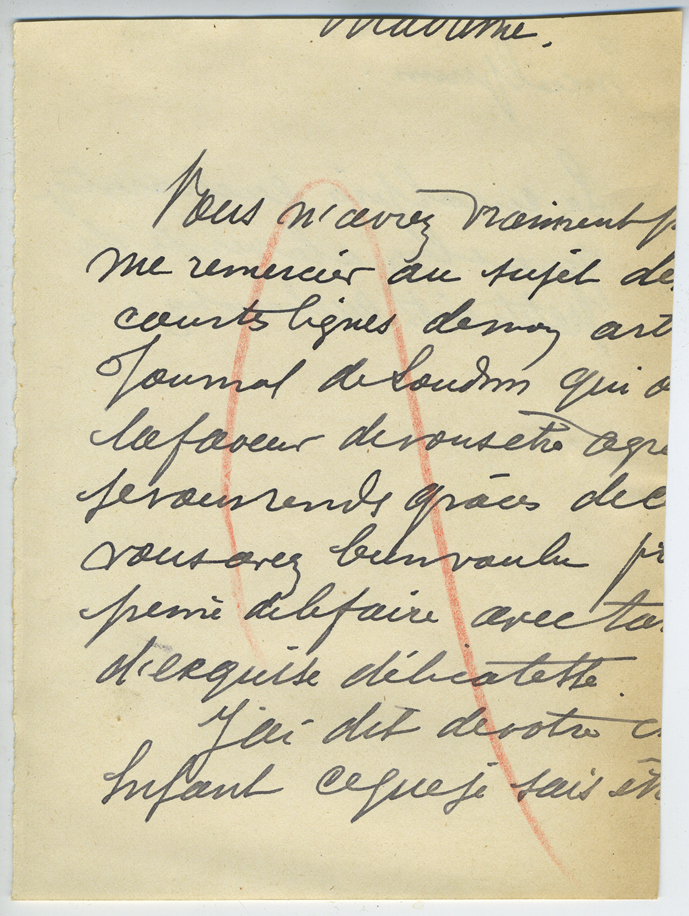 Madame.
Vous n'avez vraiment p
me remercier au sujet de
courtes lignes de mon art
Journal de Loudun qui o
la faveur de vous être agré
Je vous rends grâces de c
vous avez bien voulu pr
peine de le faire avec ta
d'exquise délicatesse.
J'ai dit de votre c
Enfant ce que je sais êt